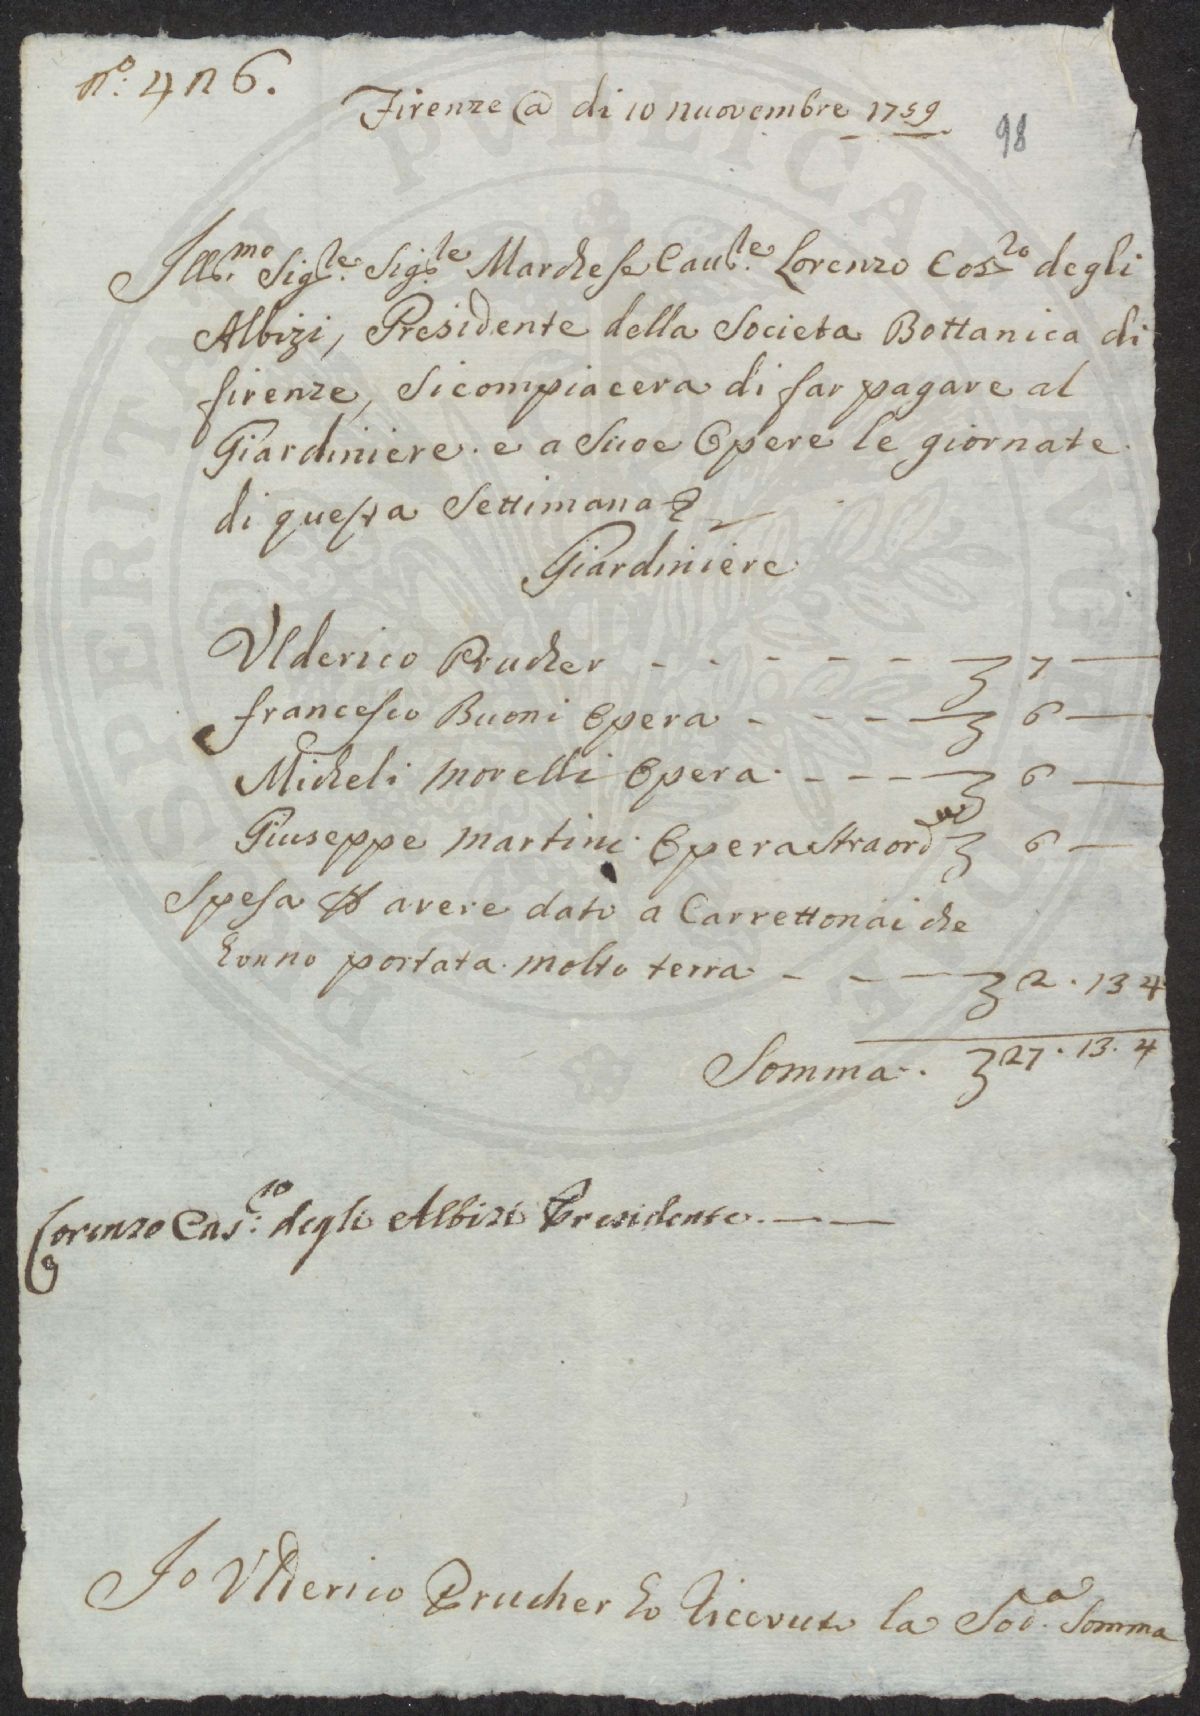 nº: 426.
Firenze @ di 10 nuovembre 1759
98
Ill.mo Sig.re Sig.re Marchese Cau.re Lorenzo Cos.zo degli
Albizi, Presidente della Societa Bottanica di
firenze, si compiacera di far pagare al
Giardiniere e a Suoe Opere le giornate
di questa Settimana
Giardiniere
Vlderico Prucher - - - - - 7 —
francesco Buoni Opera - - - - 6 —
Micheli Morelli Opera - - - 6 —
Giuseppe Martini Opera straord 6 —
Spesa avere dato a Carrettonai che
honno portata molto terra - - - 2 . 13 4
Somma . 27 . 13 . 4
Lorenzo Cas:to degli Albizi Presidente. — —
Io Vlderico Prucher ho ricevuto la Sod.a Somma
PVBLICA